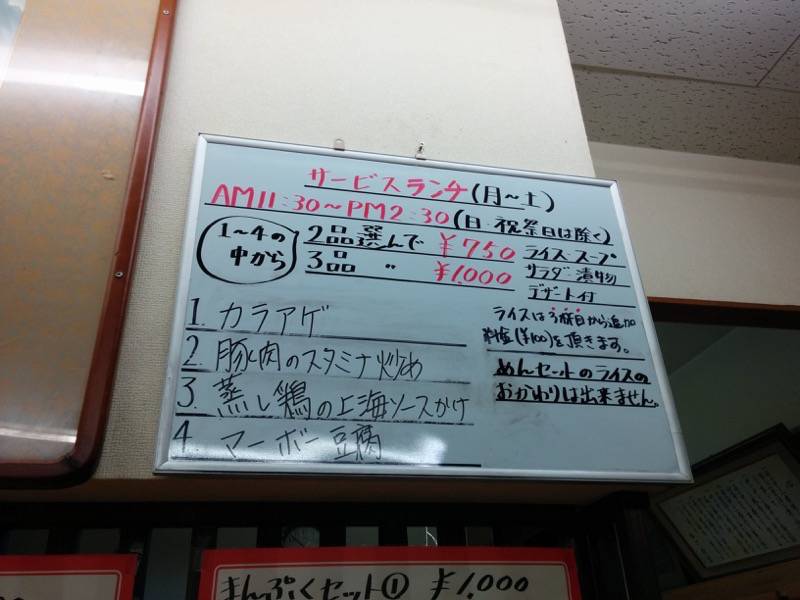 サービスランチ(月～土)
AM11:30～PM2:30(日・祝祭日は除く)
1～4の
中から
2品選んで ¥750
3品 〃 ¥1,000
ライス・スープ
サラダ・漬物
デザート付
1. カラアゲ
2. 豚肉のスタミナ炒め
3. 蒸し鶏の上海ソースかけ
4. マーボー豆腐
ライスは3杯目から追加
料金(¥100)を頂きます。
めんセットのライスの
おかわりは出来ません。
まんぷくセット① ¥1,000